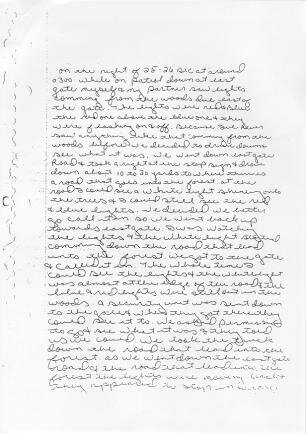 On the night of 25-26 Dec at around
0300 while on patrol down at east
gate myself & my partner saw lights
coming from the woods due east of
the gate. The lights were red & blue
the red one above the blue one & they
were flashing on & off. Because I've never
saw anything like that coming from the
woods before we decided to drive down &
see what it was. We went down east gate
road & took a right at the stop sign & drove
down about 10 to 20 yards to where there is
a road that goes into the forest at the
road I could see a white light shining onto
the trees & I could still see the red
& blue lights. We decided we better
go call it in so we went back up
towards east gate. I was watching
the lights & the white light started
coming down the road that lead
into the forest. We got to the gate
& called it in. The whole time I
could see the lights & the white light
was almost at the edge of the road & the
blue and red lights were still out in the
woods. A security unit was sent down
to the gate & when they got there they
could see it to. We asked permission
to go & see what it was & they told
us we could. We took the truck
down the road that lead into the
forest. As we went down the east gate
road & the road that lead into the
forest the lights were moving back &
they appeared to stop in